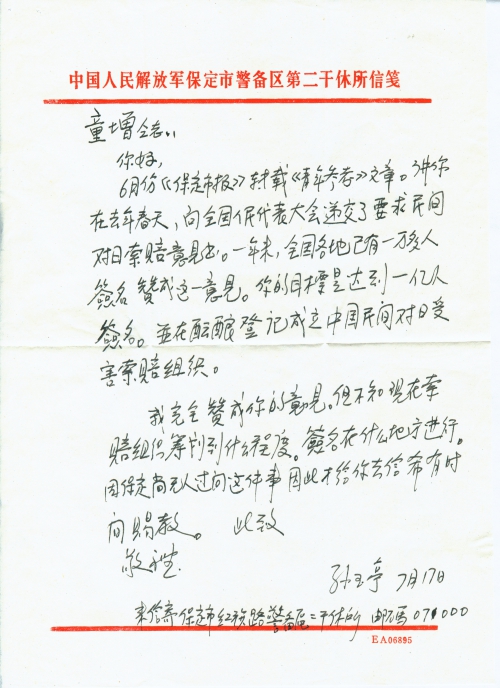 中国人民解放军保定市警备区第二干休所信笺
童增同志:
你好,
6月份《保定市报》转载《青年参考》文章。讲你
在去年春天,向全国人民代表大会递交了要求民间
对日索赔意见书。一年来,全国各地已有一万多人
簽名贊成这一意见。你的目標是达到一亿人
簽名。並在酝酿登记成立中国民间对日受
害索赔组织。
我完全贊成你的意见。但不知现在索
赔组织筹划到什么程度。簽名在什么地方进行。
因保定尚无人过问这件事因此才给你去信希有时
间赐教。 此致
敬礼
孙玉亭 7月17日
来信寄保定市红旗路警备区二干休所 邮碼071000
EA06895